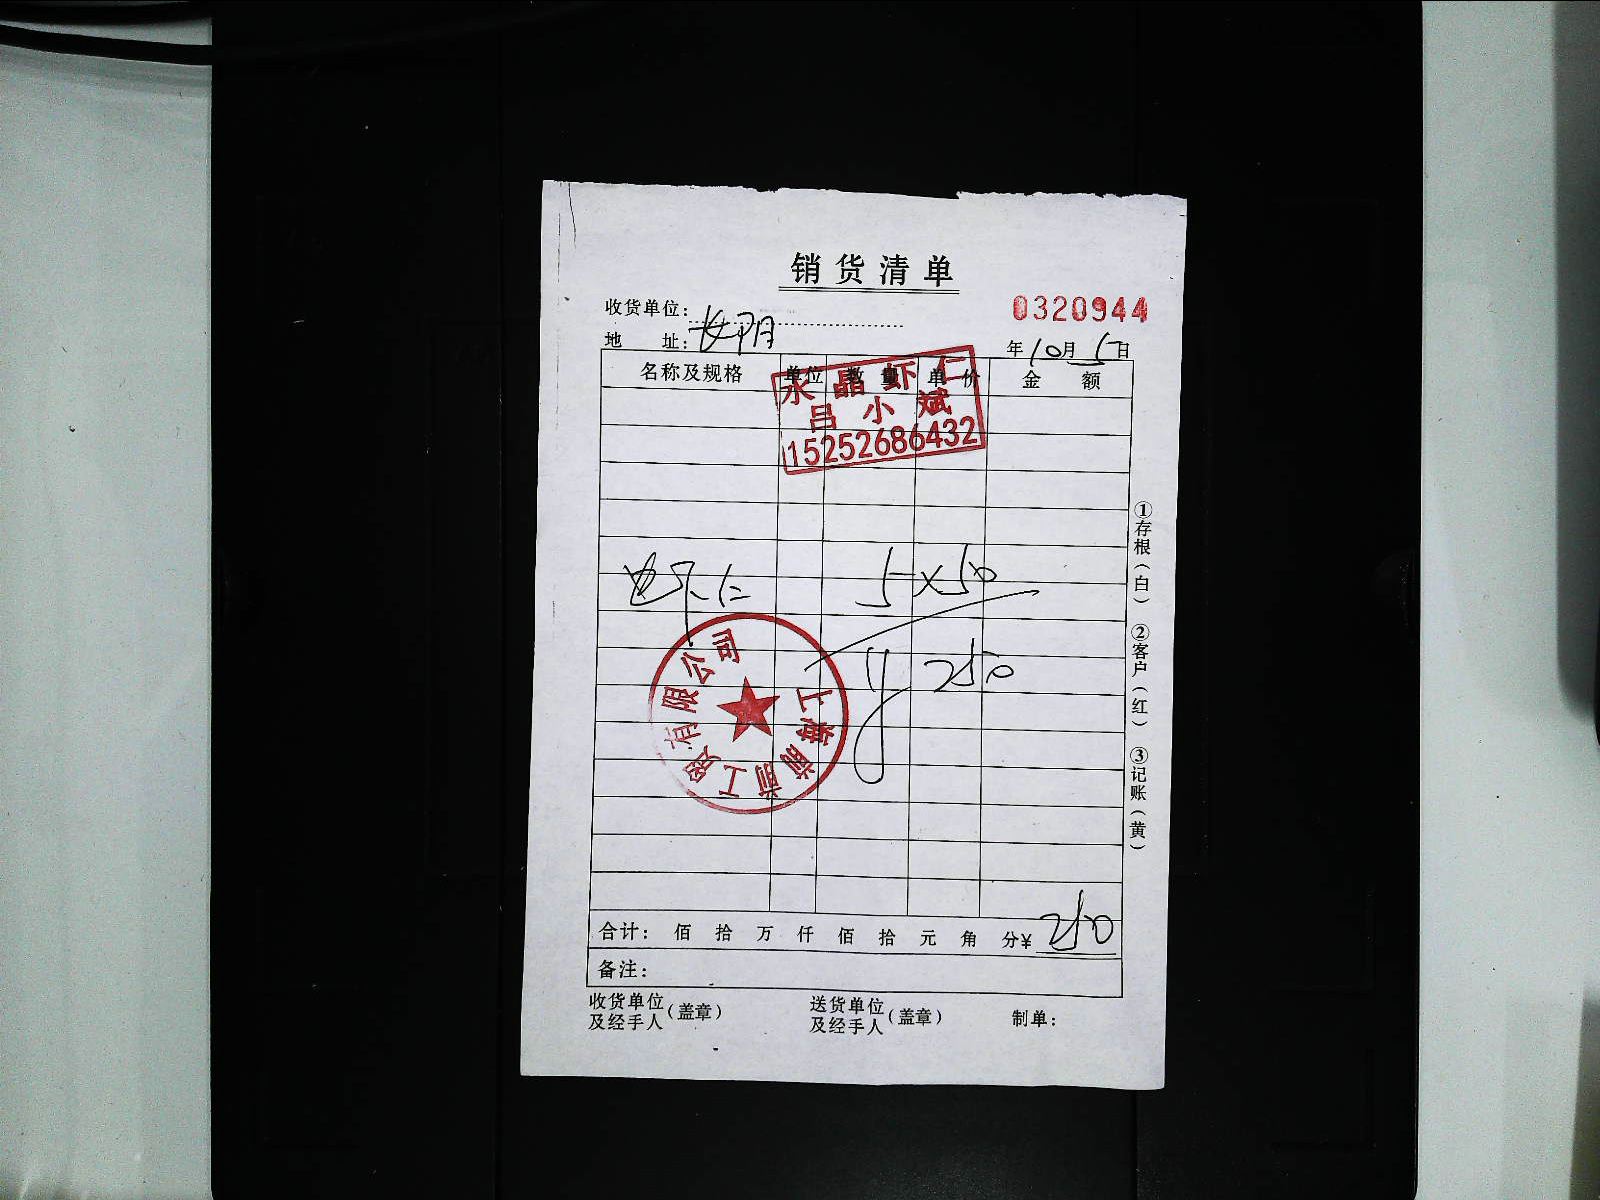 销货清单
收货单位：
0320944
地 址：长阳
年10月5日
名称及规格 单位 数量 单价 金额
永晶虾仁
吕小斌
15252686432
虾仁 5×50
¥ 250
上海前前工贸有限公司
合计： 佰 拾 万 仟 佰 拾 元 角 分¥ 250
备注：
收货单位及经手人（盖章） 送货单位及经手人（盖章） 制单：
①存根（白） ②客户（红） ③记账（黄）